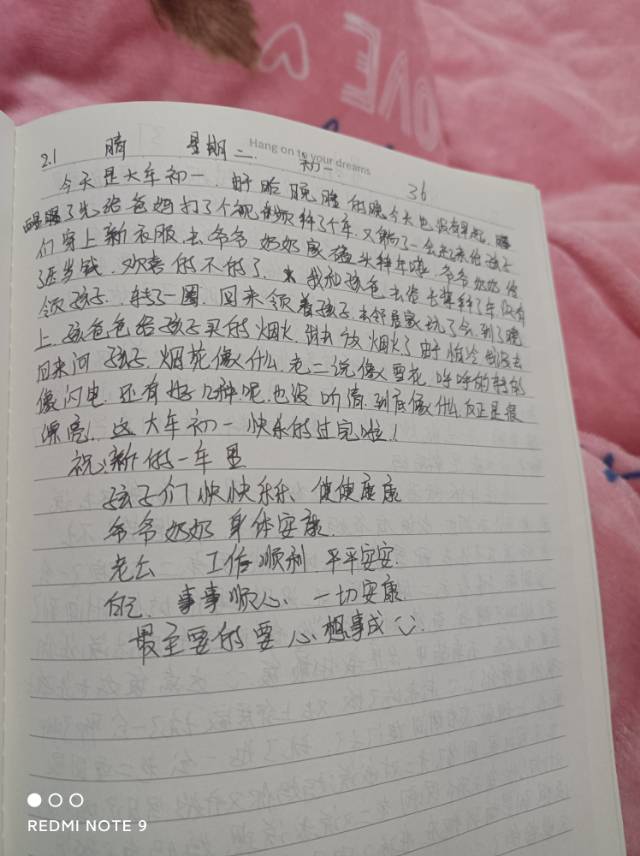 ONE
Hang on to your dreams
2.1 晴 星期二 初一 36
今天是大年初一. 由于昨晚睡的晚今天也没有早起. 睡
醒了先给爸妈打了个视频拜了个年. 又躺了一会起来给孩子
们穿上新衣服去爷爷奶奶家磕头拜年啦. 爷爷奶奶给
了压岁钱. 欢喜的不的了. 我和孩爸去给长辈拜了年没有
领孩子. 转了一圈. 回来领着孩子去邻居家玩了会. 到了晚
上. 孩爸爸给孩子买的烟火. 放烟火了由于怕冷倒没去
回来问孩子. 烟花像什么. 老二说像雪花. 呼呼的转的
像闪电. 还有好几种呢. 也没听清. 到底像什么. 反正是很
漂亮! 这大年初一快乐的过完啦!
祝:新的一年里
孩子们快快乐乐、健健康康
爷爷奶奶身体安康.
老公 工作顺利 平平安安.
自己、事事顺心、一切安康.
最主要的要心想事成
REDMI NOTE 9